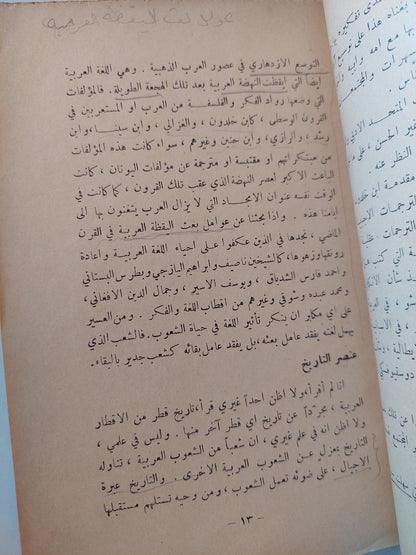 عوامل بعث اليقظة العربية
التوسع الازدهاري في عصور العرب الذهبية . وهي اللغة العربية
ايضاً التي ايقظت النهضة العربية بعد تلك الهجعة الطويلة . فالمؤلفات
التي وضعها رواد الفكر والفلسفة من العرب او المستعربين في
القرون الوسطى ، كابن خلدون ، والغزالي ، وابن سينا ، وابن
رشد ، والرازي ، وابن حنين وغيرهم ، سواء كانت هذه المؤلفات
من مبتكراتهم او مقتبسة او مترجمة عن مؤلفات اليونان ، كانت
الباعث الاكبر لعصر النهضة الذي عقب تلك القرون ، كما كانت في
الوقت نفسه عنوان الامجاد التي لا يزال العرب يتغنون بها الى
ايامنا هذه . واذا بحثنا عن عوامل بعث اليقظة العربية في القرن
الماضي ، نجدها في الذين عكفوا على احياء اللغة العربية واعادة
رونقها وزهوها ، كالشيخين ناصيف وابراهيم اليازجي وبطرس البستاني
واحمد فارس الشدياق ، ويوسف الاسير ، وجمال الدين الافغاني ،
ومحمد عبده وشوقي وغيرهم من اقطاب اللغة والفكر . ومن العسير
على اي مكابر ان ينكر تأثير اللغة في حياة الشعوب . فالشعب الذي
يهمل لغته يفقد عامل بعثه ، بل يفقد عامل بقائه كشعب جدير بالبقاء .
عنصر التاريخ
انا لم أقرأ ، ولا اظن احداً غيري قرأ ، تاريخ قطر من الاقطار
العربية ، مجرّداً عن تاريخ اي قطر آخر منها . وليس في علمي ،
ولا اظن انه في علم غيري ، ان شعباً من الشعوب العربية ، تناوله
التاريخ بمعزل عن الشعوب العربية الاخرى . والتاريخ عبرة
الاجيال ، على ضوئه تعمل الشعوب ، ومن وحيه تستلهم مستقبلها
— ١٣ —